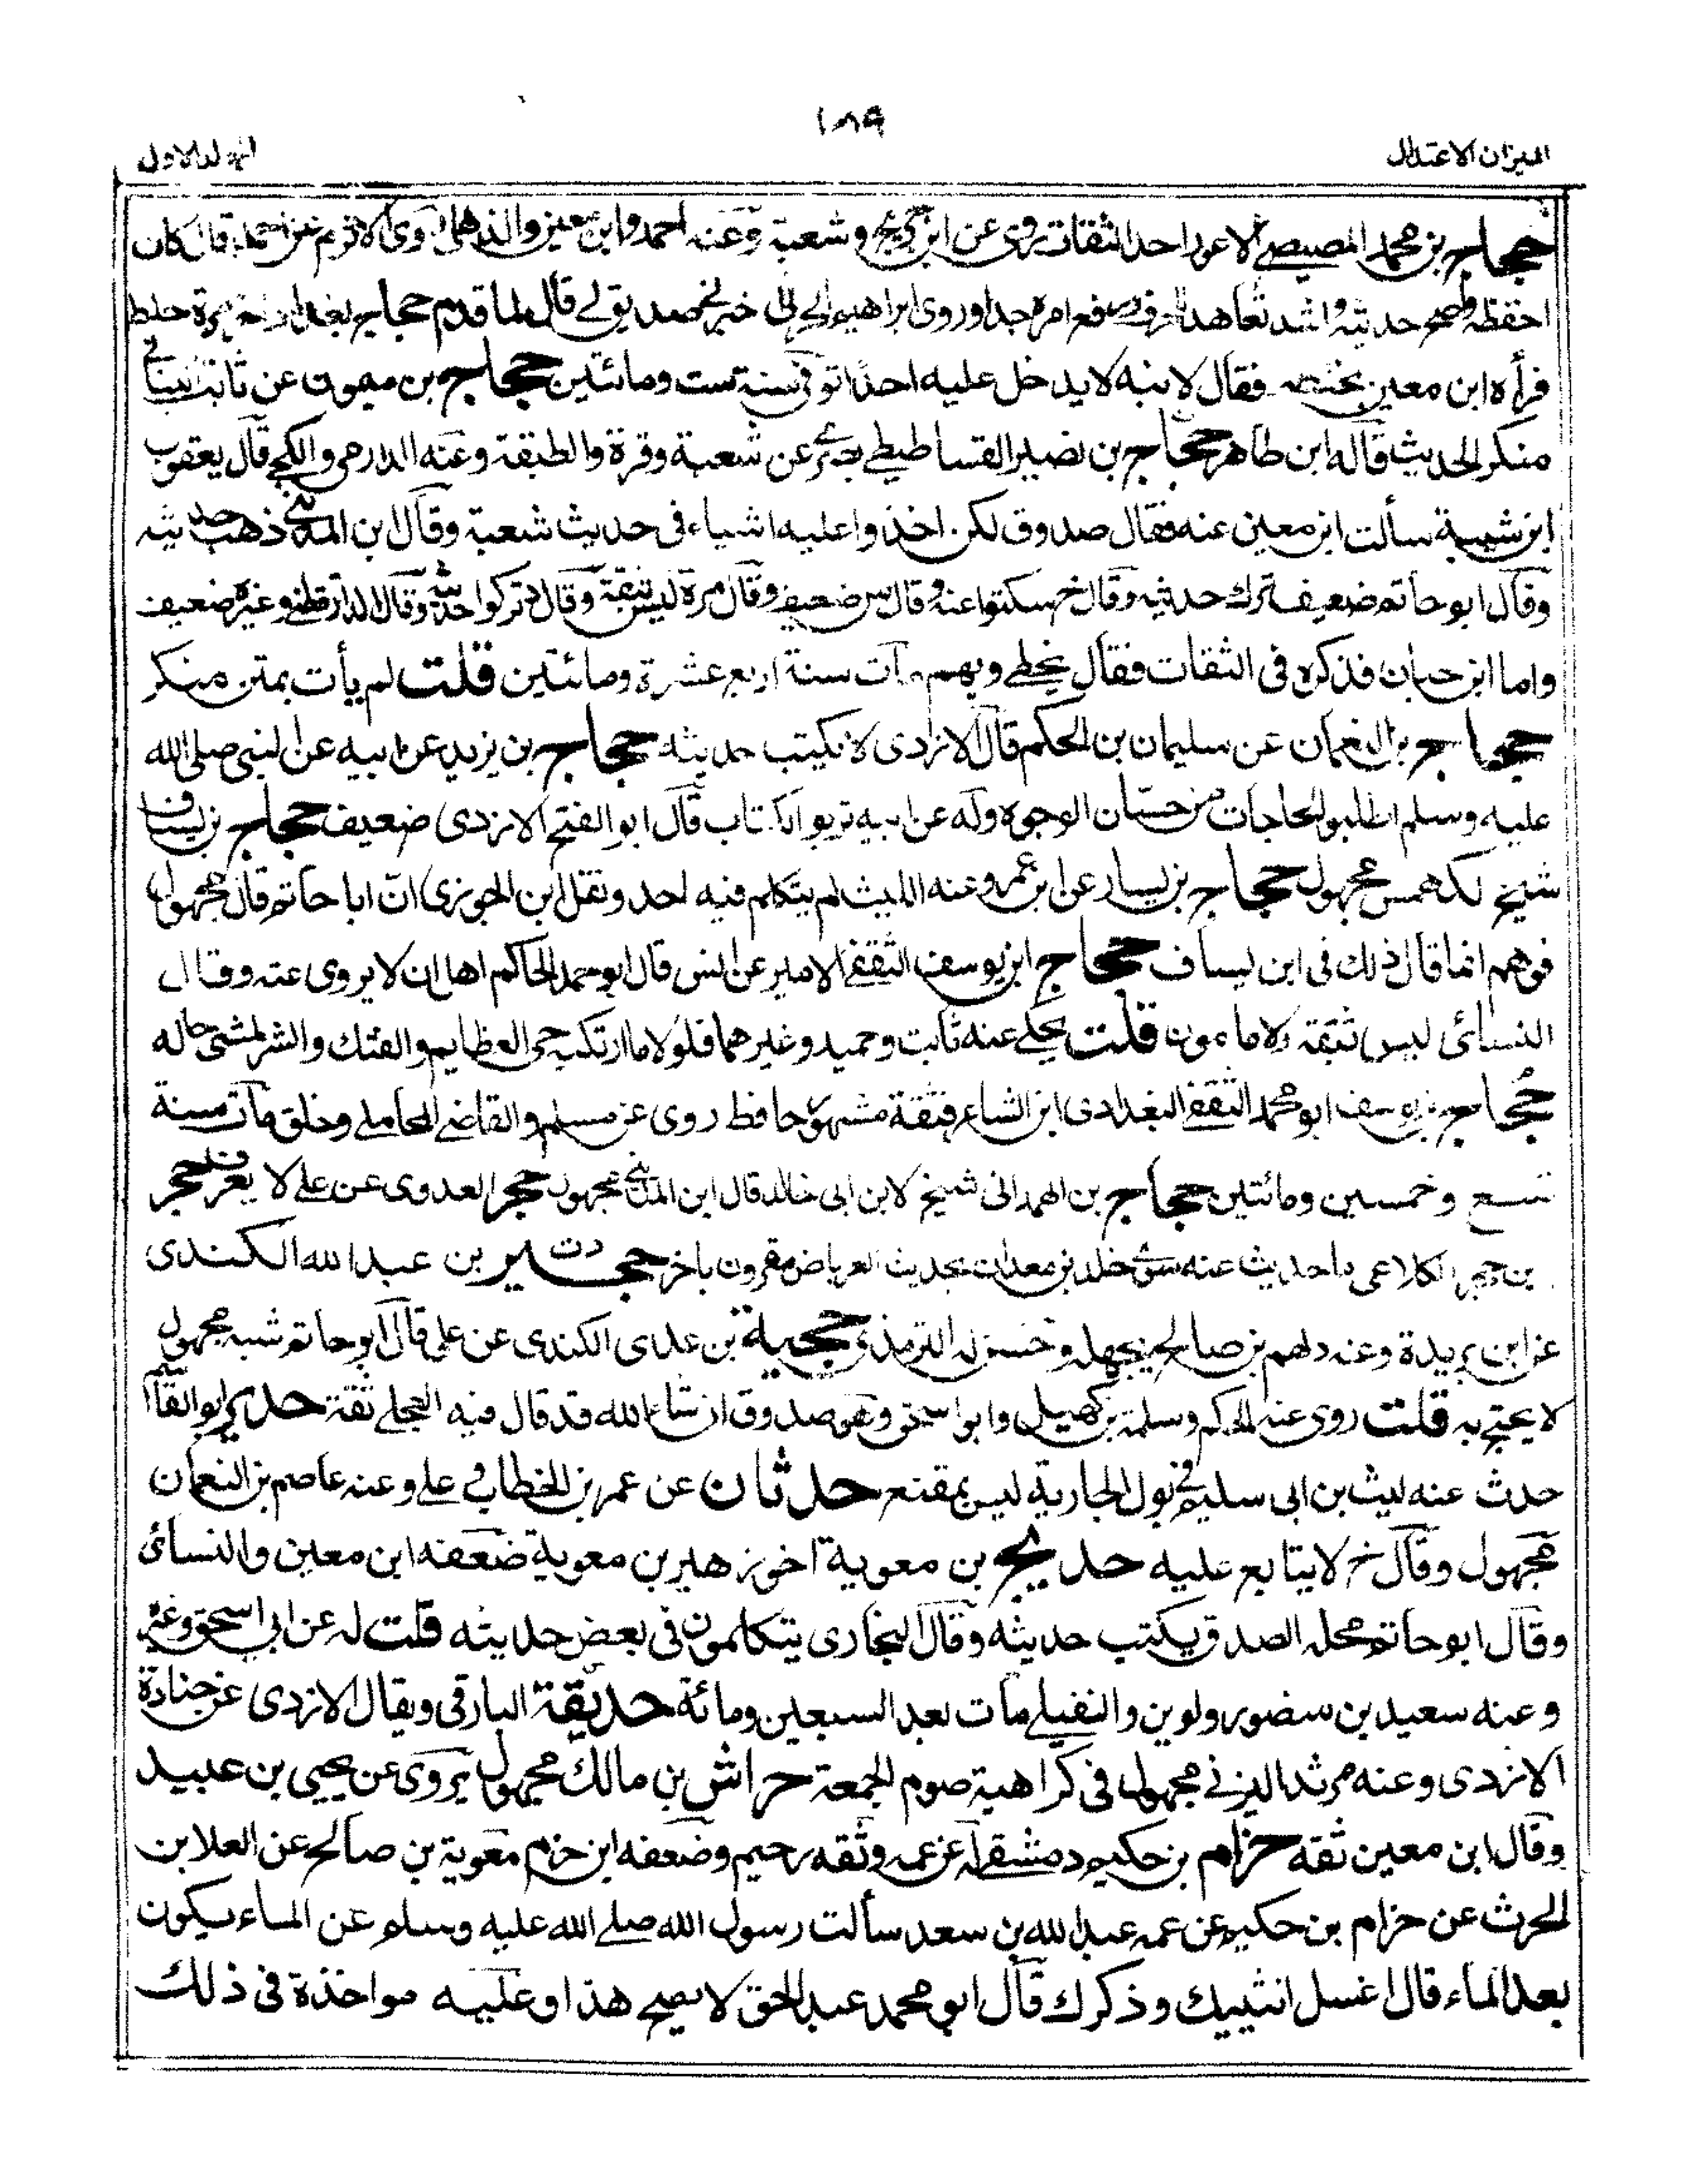 ١٨٩
الميزان الاعتدال
المجلد الاول
حجاج بن محمد المصيصى الاعور احد الثقات روى عن ابن جريج وشعبة وعنه احمد وابن معين والذهلى روى الاثرم عن احمد قال كان
احفظه واصح حديثه واشد تعاهد الحروف ورفع امره جدا وروى ابراهيم الحربى اخبرنى صديق لى قال لما قدم حجاج بغداد اخر مرة خلط
فرأه ابن معين يخلط فقال لابنه لا يدخل عليه احدا توفى سنة ست ومائتين حجاج بن ميمون عن ثابت البنانى
منكر الحديث قاله ابن طاهر حجاج بن نصير الفساطيطى بصرى عن شعبة وقرة والطبقة وعنه الدارمى والكجى قال يعقوب
ابن شيبة سألت ابن معين عنه فقال صدوق لكن اخذوا عليه اشياء فى حديث شعبة وقال ابن المدينى ذهب حديثه
وقال ابو حاتم ضعيف ترك حديثه وقال خ سكتوا عنه وقال س ضعيف وقال مرة ليس بثقة وقال د تركوا حديثه وقال الدارقطنى وغيره ضعيف
واما ابن حبان فذكره فى الثقات فقال يخطى ويهم مات سنة اربع عشرة ومائتين قلت لم يأت بمتن منكر
حجاج بن النعمان عن سليمان بن الحكم قال الازدى لا يكتب حديثه حجاج بن يزيد عن ابيه عن النبى صلى الله
عليه وسلم اطلبوا الحاجات من حسان الوجوه وله عن ابيه تربوا الكتاب قال ابو الفتح الازدى ضعيف حجاج بن يساف
شيخ لكهمس مجهول حجاج بن يسار عن ابن عمر وعنه الليث لم يتكلم فيه احد ونقل ابن الجوزى ان ابا حاتم قال مجهول
فوهم انما قال ذلك فى ابن يساف حجاج ابن يوسف الثقفى الامير عن انس قال ابو احمد الحاكم اهل ان لا يروى عنه وقال
النسائى ليس ثبقة ولا مامون قلت يحكى عنه ثابت وحميد وغيرهما فلولا ما ارتكبه من العظايم والفتك والشر لمشى حاله
حجاج بن يوسف ابو محمد الثقفى البغدادى ابن الشاعر فثقة مشهور حافظ روى عن مسلم والقاضى المحاملى وخلق مات سنة
تسع وخمسين ومائتين حجاج بن الهمدانى شيخ لابن ابى خالد قال ابن المدينى مجهول حجر العدوى عن على لا يعرف حجر
بن حجر الكلاعى ما حديث عنه سوى خالد بن معدان بحديث العرباض مقرون باخر حجير دت بن عبد الله الكندى
عن ابن بريدة وعنه دلهم بن صالح يجهل وحسن له الترمذى حجية بن عدى الكندى عن على قال ابو حاتم شبه مجهول
لا يحتج به قلت روى عنه الحكم وسلمة بن كهيل وابو اسحق وهو صدوق ان شاء الله قد قال فيه العجلى ثقة حدير ابو القاسم
حدث عنه ليث بن ابى سليم فى بول الجارية ليس بمقنع حدثان عن عمر بن الخطاب فى على وعنه عاصم بن النعمان
مجهول وقال خ لا يتابع عليه حديج بن معوية اخو زهير بن معوية ضعفه ابن معين والنسائى
وقال ابو حاتم محله الصدق يكتب حديثه وقال البخارى يتكلمون فى بعض حديثه قلت له عن ابى اسحق وغيره
وعنه سعيد بن منصور ولوين والنفيلى مات بعد السبعين ومائة حذيفة البارقى ويقال الازدى عن جنادة
الازدى وعنه مرثد اليزنى مجهول فى كراهية صوم الجمعة حراش بن مالك مجهول يروى عن يحيى بن عبيد
وقال ابن معين ثقة حزام بن حكيم دمشقى عن عمه وثقه رحيم وضعفه ابن حزم معوية بن صالح عن العلا بن
الحرث عن حزام بن حكيم عن عمه عبد الله بن سعد سألت رسول الله صلى الله عليه وسلم عن الماء يكون
بعد الماء قال اغسل انثييك وذكرك قال ابو محمد عبد الحق لا يصح هذا وعليه مواخذة فى ذلك